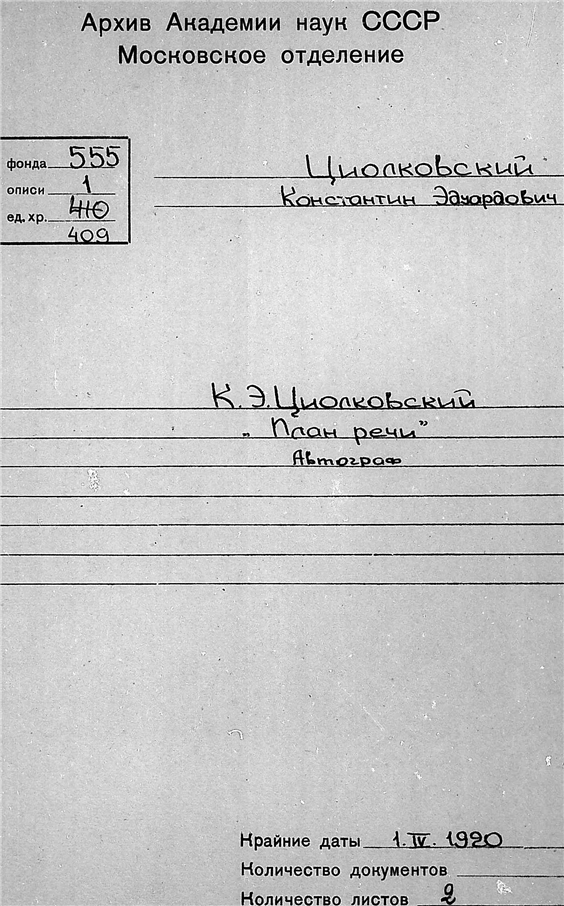 Архив Академии наук СССР
Московское отделение
фонда 555
описи 1
ед. хр. 410
409
Циолковский
Константин Эдуардович
К.Э.Циолковский
„План речи”
Автограф
Крайние даты 1.IV.1920
Количество документов
Количество листов 2